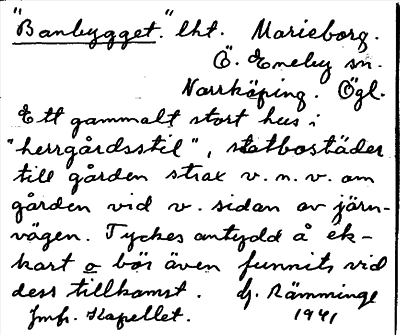 "Banbygget." lht. Marieborg.
Ö. Eneby sn.
Norrköping. Ögl.
Ett gammalt stort hus i
"herrgårdsstil", statbostäder
till gården strax v. n. v. om
gården vid v. sidan av järn-
vägen. Tyckes antydd å ek-
kart o bör även funnits vid
dess tillkomst. Hj. Rämminge
Jmf. Kapellet. 1941